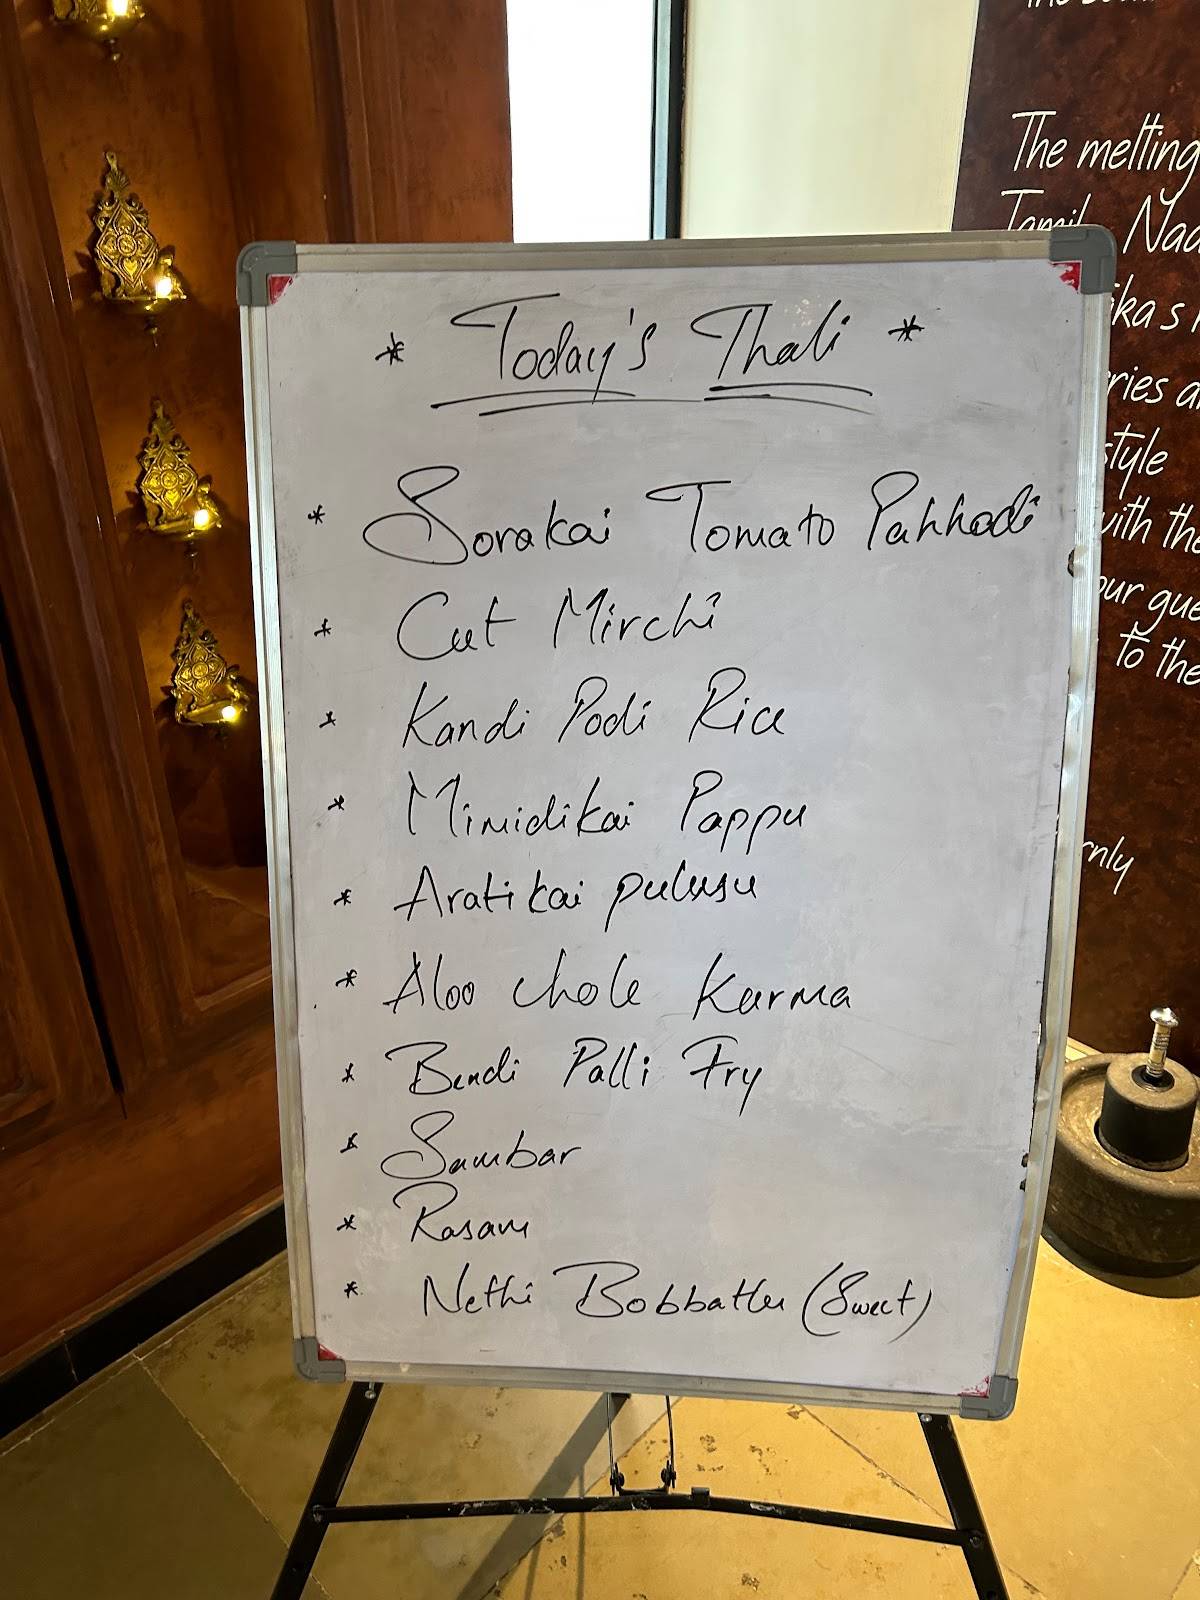 The melting
Tamil Nad
ika s
ries a
style
with the
our gue
to the
rnly
* Today's Thali *
* Sorakai Tomato Pahhadi
* Cut Mirchi
* Kandi Podi Rice
* Mimidikai Pappu
* Aratikai pulusu
* Aloo chole Kurma
* Bendi Palli Fry
* Sambar
* Rasam
* Nethi Bobbattu (Sweet)